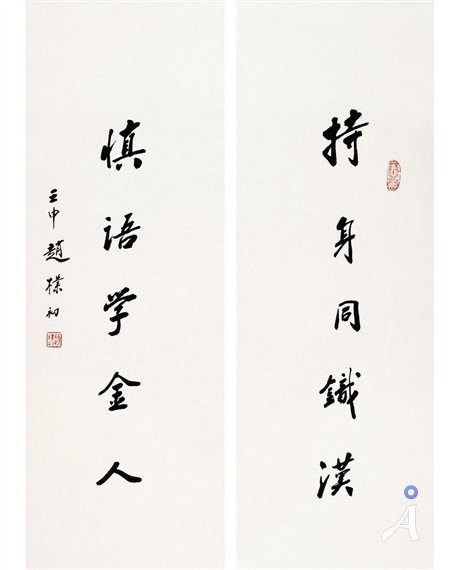 持身同鐵漢
慎语学金人
壬申趙樸初